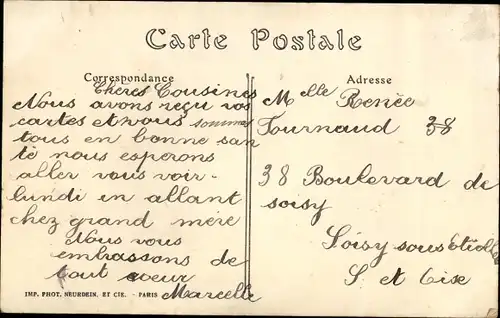 Carte Postale
Correspondance
Chères Cousines
Nous avons reçu vos
cartes et nous sommes
tous en bonne san
té nous esperons
aller vous voir
lundi en allant
chez grand mère
Nous vous
embrassons de
tout coeur
Marcelle
IMP. PHOT. NEURDEIN, ET CIE. - PARIS
Adresse
Melle Renée
Fournaud 38
38 Boulevard de
soisy
Soisy sous Etiolles
S. et Oise